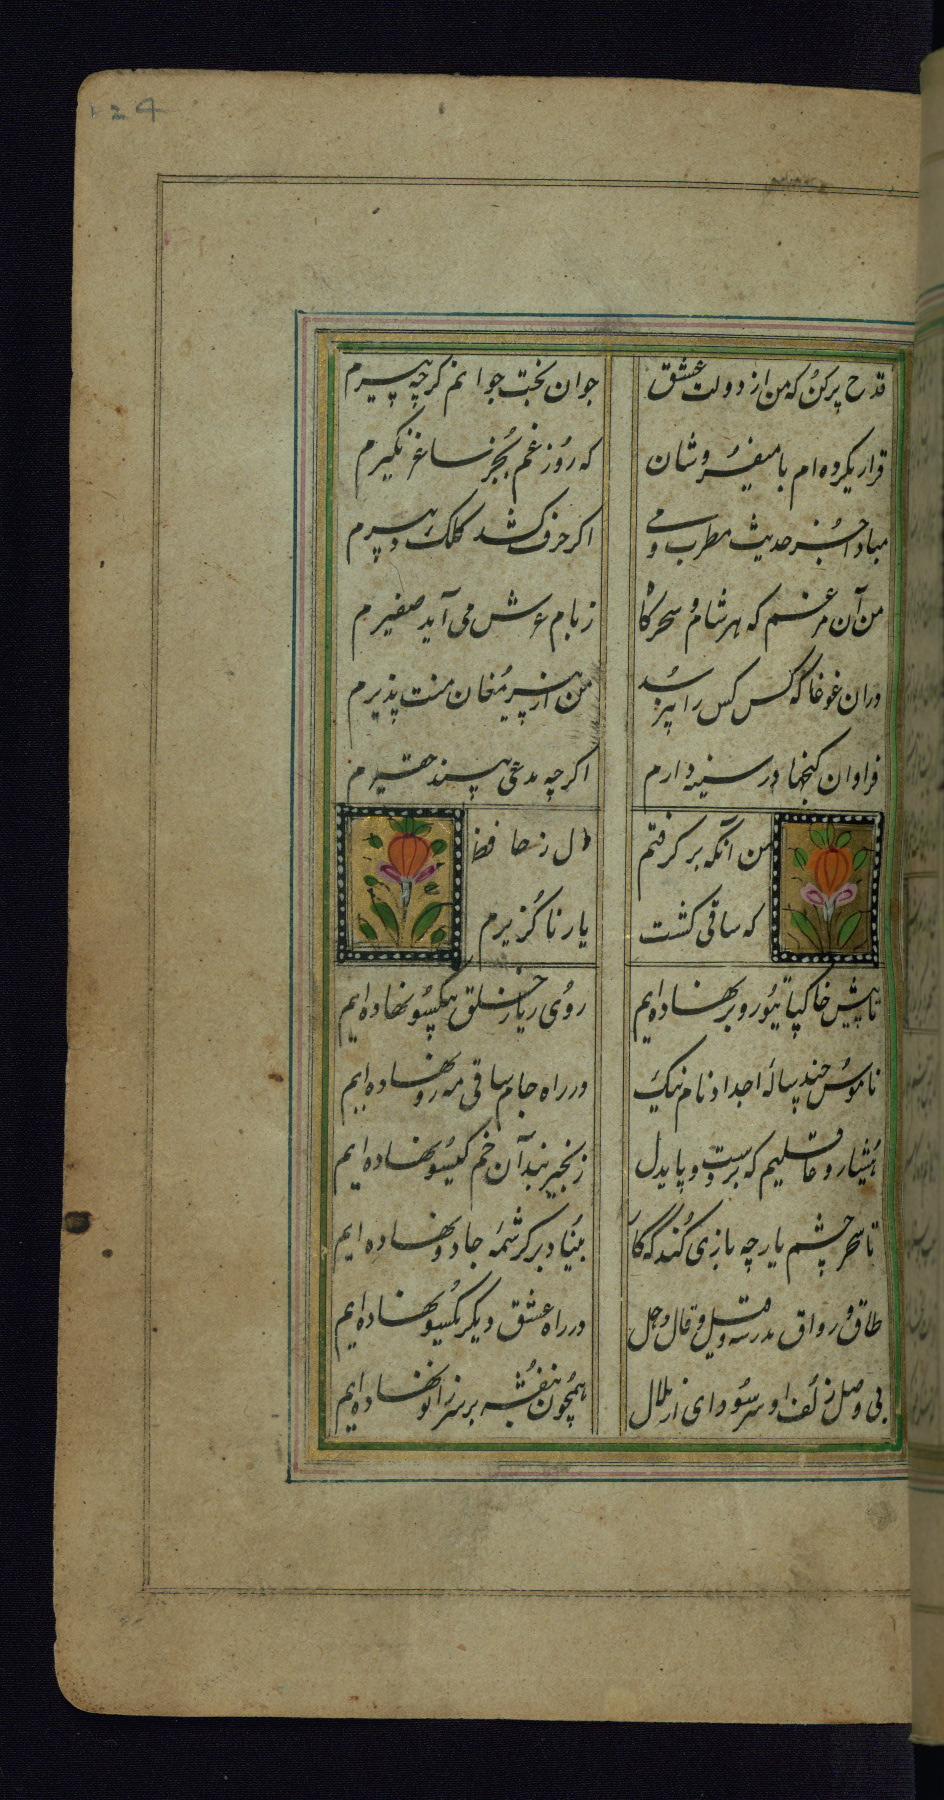 قدح پر کن که من از دولت عشق جوان بخت جوانم کرچه پیرم
قرار یکرده ام با میفروشان که روز غم بجز ساغر نکیرم
مبادا جز حدیث مطرب و می اکر حرفی کشد کلک دبیرم
من آن مرغم که هر شام و سحرکاه ز بام عرش می آید صفیرم
دران غوغا که کس کس را نپرسد من از پیر مغان منت پذیرم
فراوان کنجها در سینه دارم اکرچه مدعی بیند حقیرم
من آنکه بر کرفتم دل ز حافظ
که ساقی کشت یار ناکزیرم
تا پیش خاکپای تو رو بر نهاده ایم روی ریا ز خلق بیکسو نهاده ایم
ناموس چند ساله اجداد نام نیک در راه جام ساقی مه رو نهاده ایم
هشیار و عاقلیم که بر دست و پای دل زنجیر بند آن خم کیسو نهاده ایم
تا سحر چشم یار چه بازی کند که کار بنیاد بر کرشمه جادو نهاده ایم
طاق و رواق مدرسه و قیل و قال و حل در راه عشق دیکر یکسو نهاده ایم
بی وصل زلف او سر سودای از ملال همچون بنفشه بر سر زانو نهاده ایم